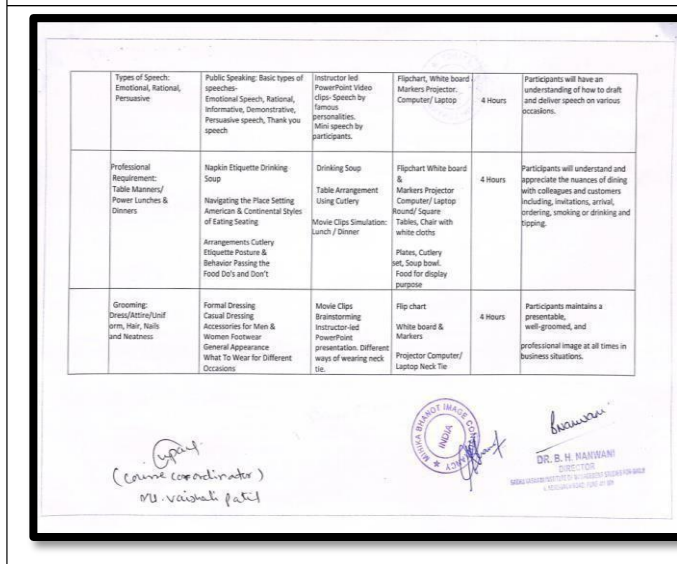 Types of Speech:
Emotional, Rational,
Persuasive
Public Speaking: Basic types of
speeches-
Emotional Speech, Rational,
Informative, Demonstrative,
Persuasive speech, Thank you
speech
Instructor led
PowerPoint Video
clips- Speech by
famous
personalities.
Mini speech by
participants.
Flipchart, White board
Markers Projector.
Computer/ Laptop
4 Hours
Participants will have an
understanding of how to draft
and deliver speech on various
occasions.
Professional
Requirement:
Table Manners/
Power Lunches &
Dinners
Napkin Etiquette Drinking
Soup
Navigating the Place Setting
American & Continental Styles
of Eating Seating
Arrangements Cutlery
Etiquette Posture &
Behavior Passing the
Food Do's and Don't
Drinking Soup
Table Arrangement
Using Cutlery
Movie Clips Simulation:
Lunch / Dinner
Flipchart White board
&
Markers Projector
Computer/ Laptop
Round/ Square
Tables, Chair with
white cloths
Plates, Cutlery
set, Soup bowl.
Food for display
purpose
4 Hours
Participants will understand and
appreciate the nuances of dining
with colleagues and customers
including, invitations, arrival,
ordering, smoking or drinking and
tipping.
Grooming:
Dress/Attire/Unif
orm, Hair, Nails
and Neatness
Formal Dressing
Casual Dressing
Accessories for Men &
Women Footwear
General Appearance
What To Wear for Different
Occasions
Movie Clips
Brainstorming
Instructor-led
PowerPoint
presentation. Different
ways of wearing neck
tie.
Flip chart
White board &
Markers
Projector Computer/
Laptop Neck Tie
4 Hours
Participants maintains a
presentable,
well-groomed, and
professional image at all times in
business situations.
(Course coordinator)
Ms. Vaishali Patil
INDIA
DR. B. H. NANWANI
DIRECTOR